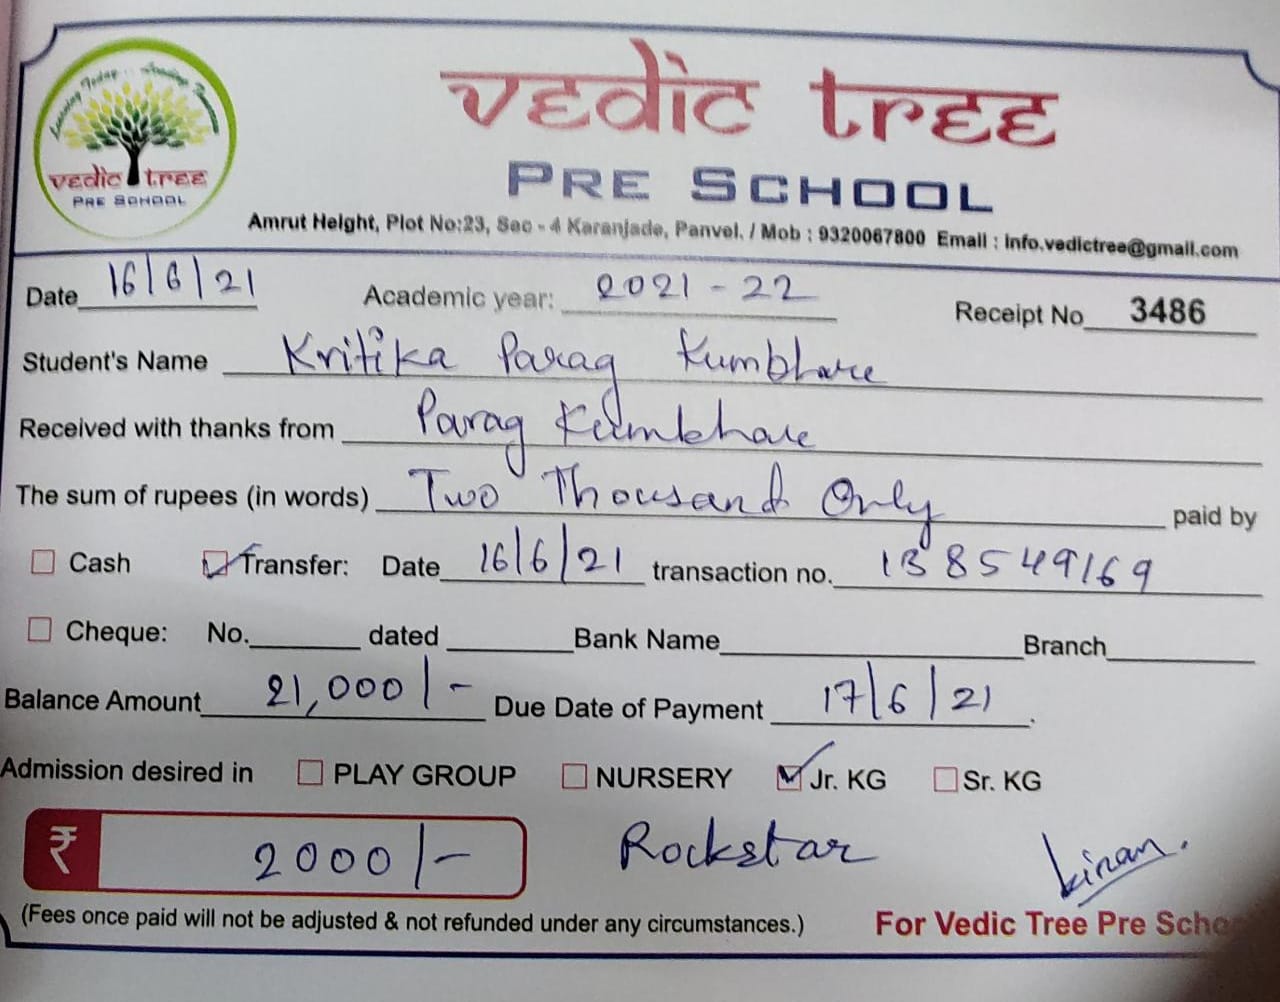 Learning Today... Leading Tomorrow
vedic tree
PRE SCHOOL
vedic tree
PRE SCHOOL
Amrut Height, Plot No:23, Sec - 4 Karanjade, Panvel. / Mob : 9320067800 Email : info.vedictree@gmail.com
Date 16/6/21 Academic year: 2021-22 Receipt No 3486
Student's Name Kritika Parag Kumbhare
Received with thanks from Parag Kumbhare
The sum of rupees (in words) Two Thousand Only paid by
Cash Transfer: Date 16/6/21 transaction no. 138549169
Cheque: No. dated Bank Name Branch
Balance Amount 21,000/- Due Date of Payment 17/6/21.
Admission desired in PLAY GROUP NURSERY Jr. KG Sr. KG
₹ 2000/- Rockstar kiran.
(Fees once paid will not be adjusted & not refunded under any circumstances.) For Vedic Tree Pre Scho